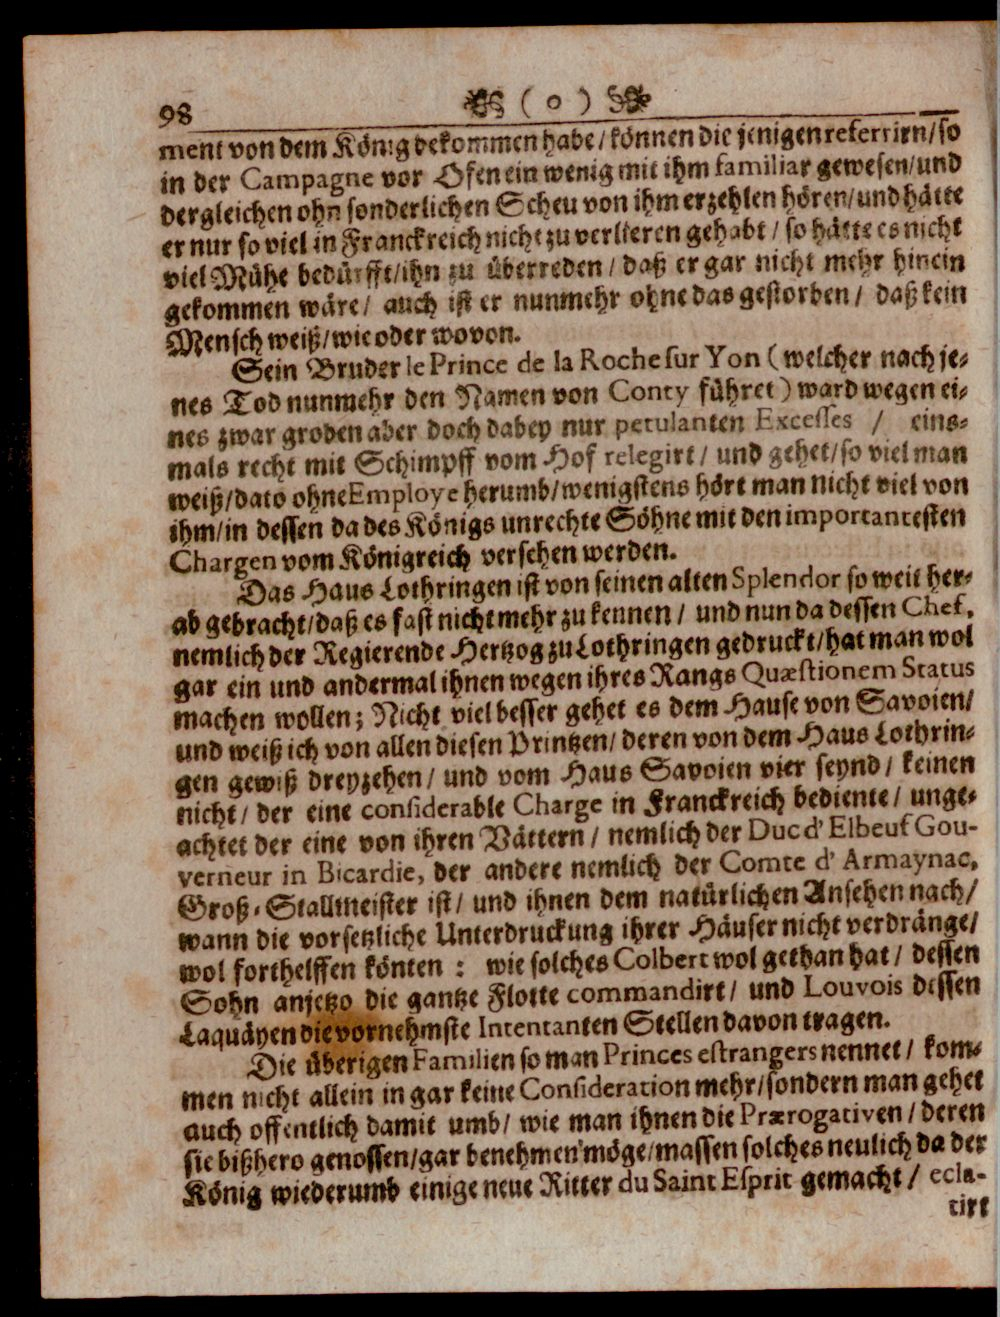 98 ( o )
ment von dem König bekommen habe / können die jenigen referrirn / so
in der Campagne vor Ofen ein wenig mit ihm familiar gewesen / und
dergleichen ohn sonderlichen Scheu von ihm erzehlen hören / und hätte
er nur so viel in Franckreich nicht zu verlieren gehabt / so hätte es nicht
viel Mühe bedürfft / ihn zu überreden / daß er gar nicht mehr hinein
gekommen wäre / auch ist er nunmehr ohne das gestorben / daß kein
Mensch weiß / wie oder wovon.
Sein Bruder le Prince de la Roche sur Yon (welcher nach je-
nes Tod nunmehr den Namen von Conty führet) ward wegen ei-
nes zwar groben aber doch dabey nur petulanten Excesses / eins-
mals recht mit Schimpff vom Hof relegirt / und gehet / so viel man
weiß / dato ohne Employe herumb / wenigstens hört man nicht viel von
ihm / in dessen da des Königs unrechte Söhne mit den importantesten
Chargen vom Königreich versehen werden.
Das Haus Lothringen ist von seinen alten Splendor so weit her-
ab gebracht / daß es fast nicht mehr zu kennen / und nun da dessen Chef,
nemlich der Regierende Hertzog zu Lothringen gedruckt / hat man wol
gar ein und andermal ihnen wegen ihres Rangs Quæstionem Status
machen wollen; Nicht viel besser gehet es dem Hause von Savoien /
und weiß ich von allen diesen Printzen / deren von dem Haus Lothrin-
gen gewiß dreyzehen / und vom Haus Savoien vier seynd / keinen
nicht / der eine considerable Charge in Franckreich bediente / unge-
achtet der eine von ihren Vättern / nemlich der Duc d' Elbeuf Gou-
verneur in Bicardie, der andere nemlich der Comte d' Armaynac,
Groß-Stallmeister ist / und ihnen dem natürlichen Ansehen nach /
wann die vorsetzliche Unterdruckung ihrer Häuser nicht verdränge /
wol forthelffen könten : wie solches Colbert wol gethan hat / dessen
Sohn anjetzo die gantze Flotte commandirt / und Louvois dessen
Laquäyen die vornehmste Intentanten Stellen davon tragen.
Die überigen Familien so man Princes estrangers nennet / kom-
men nicht allein in gar keine Consideration mehr / sondern man gehet
auch offentlich damit umb / wie man ihnen die Prærogativen / deren
sie bißhero genossen / gar benehmen möge / massen solches neulich da der
König wiederumb einige neue Ritter du Saint Esprit gemacht / ecla-
tirt